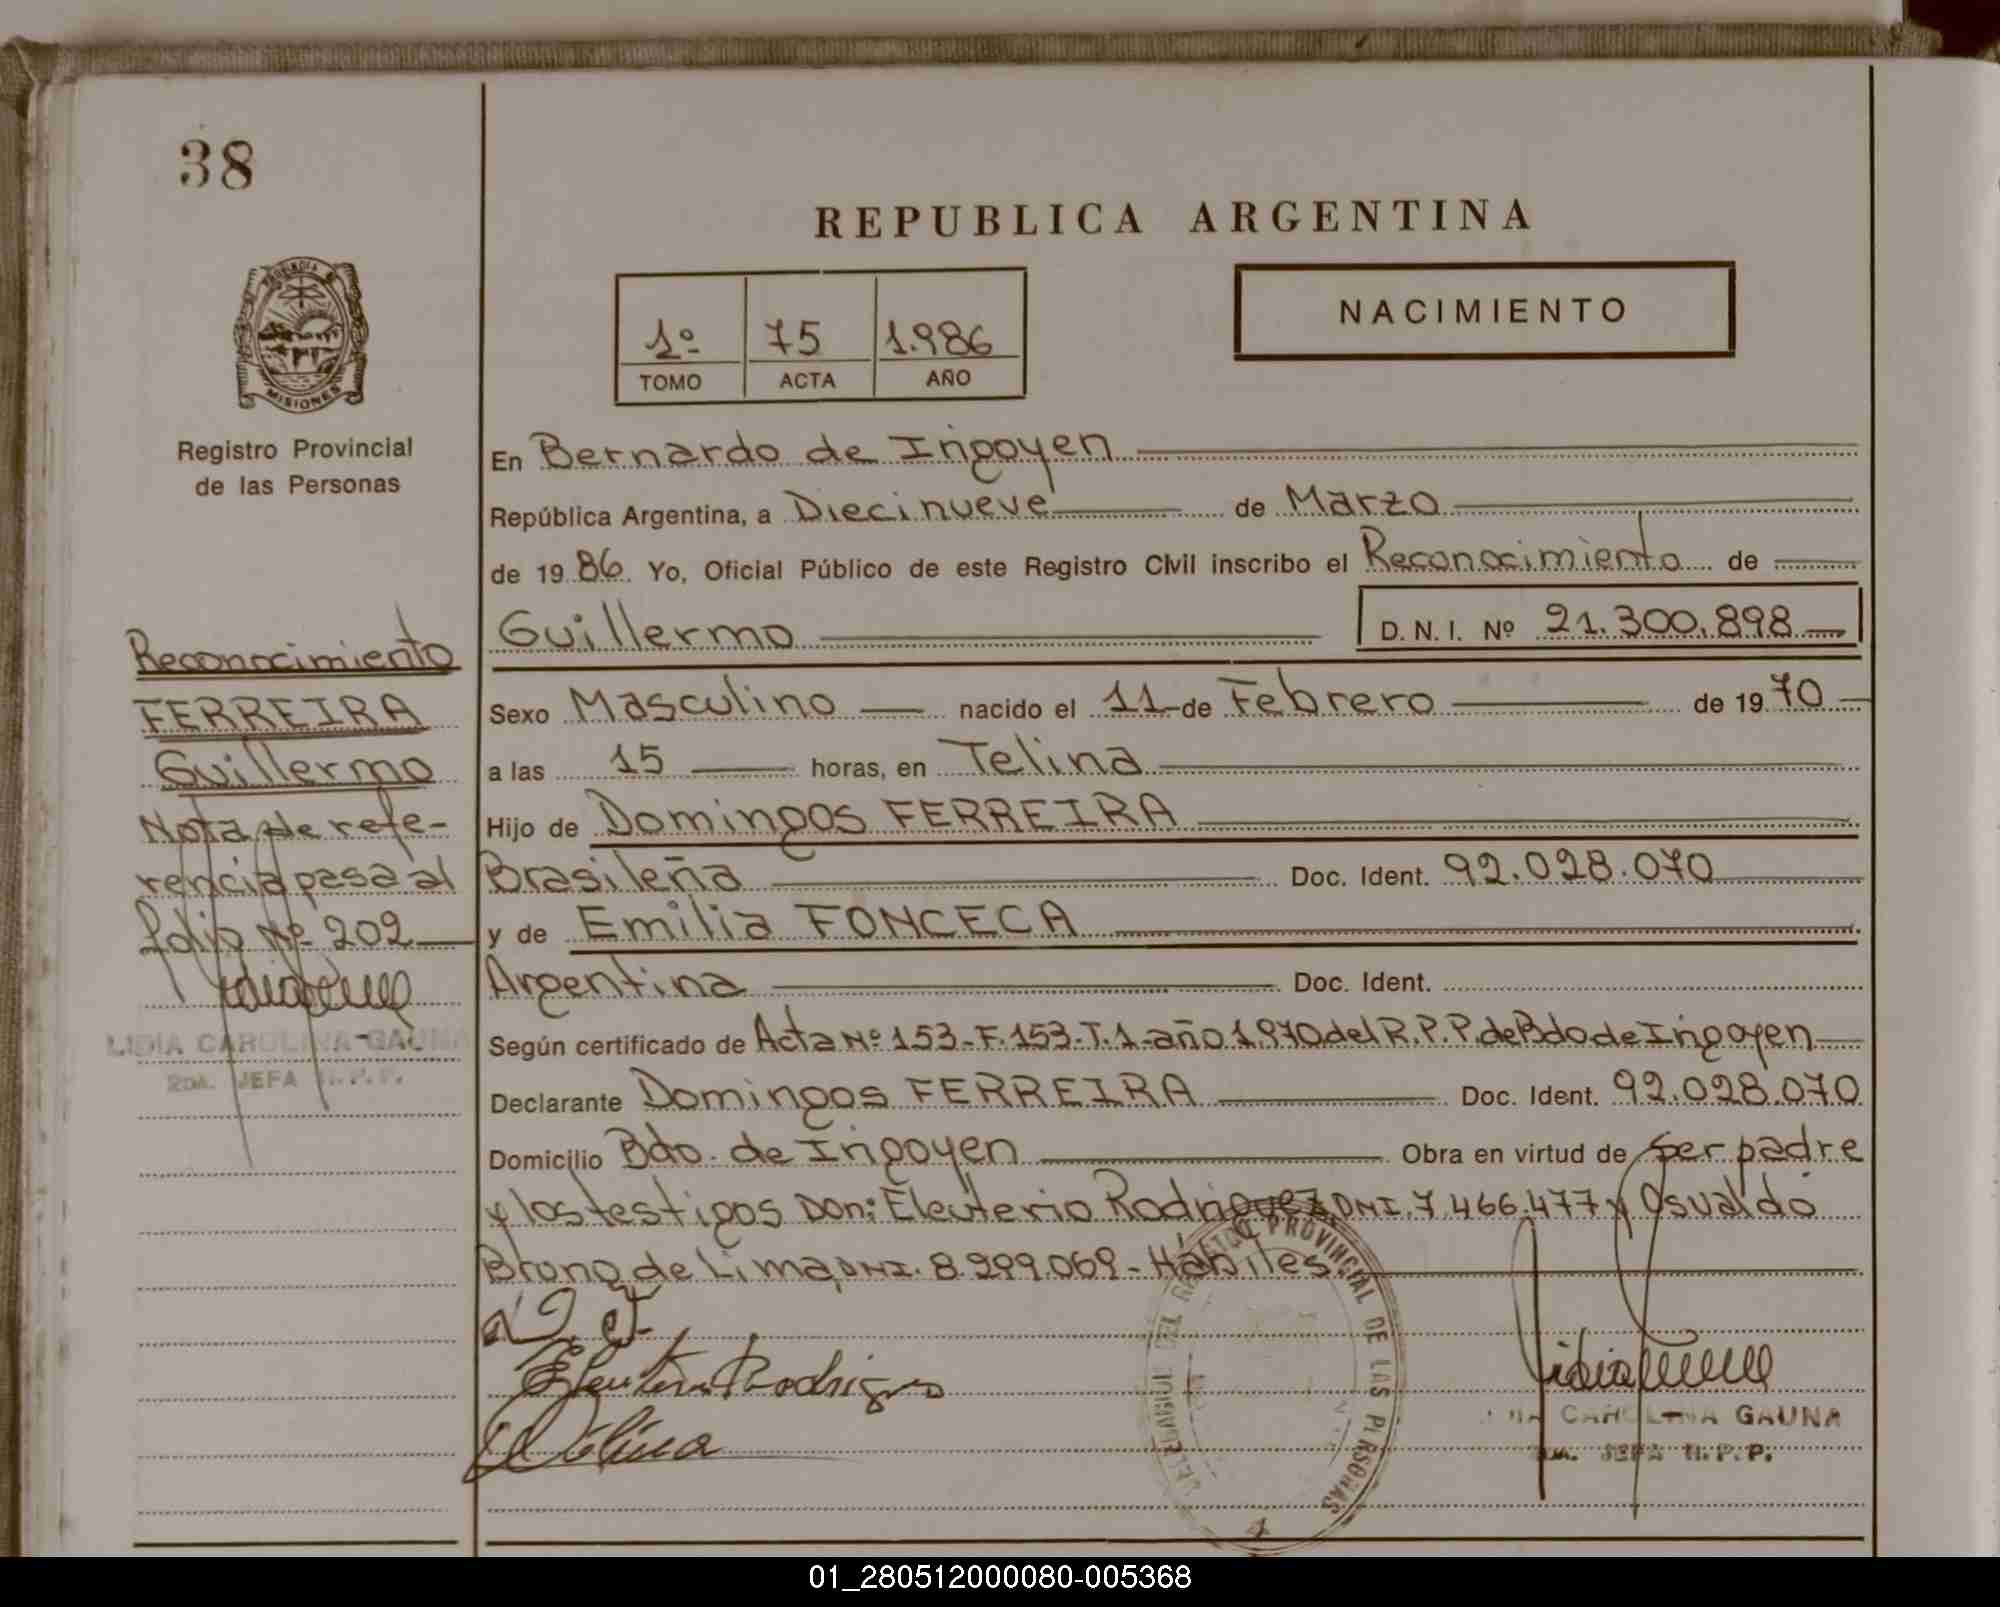 38
REPUBLICA ARGENTINA
NACIMIENTO
1º 75 1.986
TOMO ACTA AÑO
PROVINCIA DE
MISIONES
Registro Provincial
de las Personas
En Bernardo de Irigoyen
República Argentina, a Diecinueve de Marzo
de 19 86. Yo, Oficial Público de este Registro Civil inscribo el Reconocimiento de
Guillermo D. N. I. Nº 21.300.898
Sexo Masculino nacido el 11 de Febrero de 19 70
a las 15 horas, en Telina
Hijo de Domingos FERREIRA
Brasileña Doc. Ident. 92.028.070
y de Emilia FONCECA
Argentina Doc. Ident.
Según certificado de Acta Nº 153-F.153-T.1-año 1.970 del R.P.P. de Bdo de Irigoyen
Declarante Domingos FERREIRA Doc. Ident. 92.028.070
Domicilio Bdo. de Irigoyen Obra en virtud de ser padre
y los testigos Don: Eleuterio Rodriguez DNI. 7.466.477 y Osvaldo
Brono de Lima DNI. 8.299.069 - Hábiles
Eleuterio Rodrigues
REGISTRO PROVINCIAL DE LAS PERSONAS
CAROLINA GAUNA
2da. JEFA R.P.P.
Reconocimiento
FERREIRA
Guillermo
Nota de refe-
rencia pasa al
folio Nº 202
LIDIA CAROLINA GAUNA
2da. JEFA R.P.P.
01_280512000080-005368